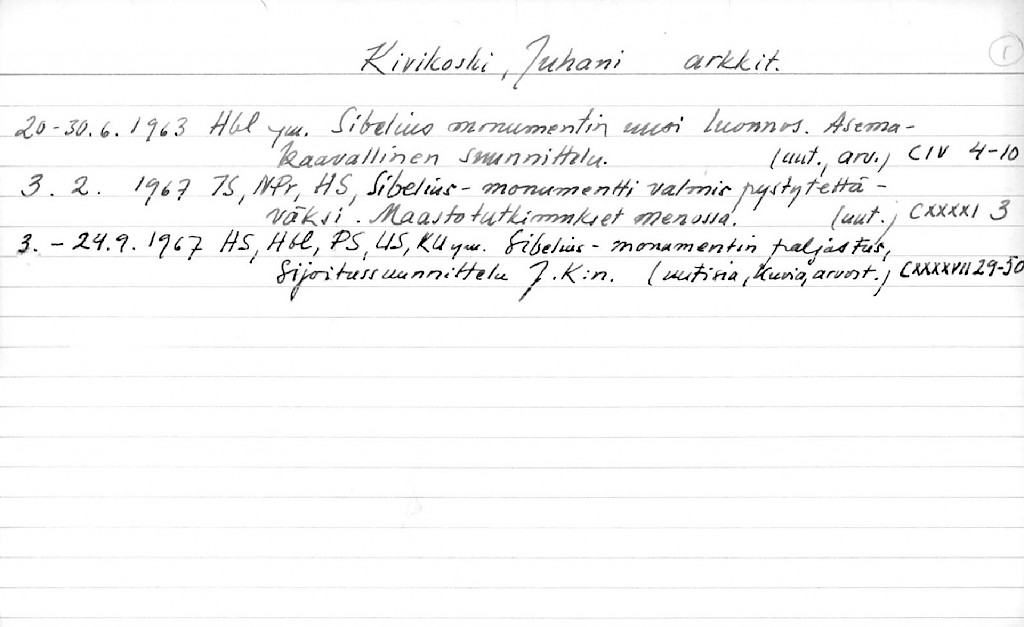 Kivikoski, Juhani arkkit. 1
20-30.6.1963 Hbl ym. Sibelius monumentin uusi luonnos. Asema-
kaavallinen suunnittelu. (uut., arv.) CIV 4-10
3. 2. 1967 IS, NPr, HS, Sibelius-monumentti valmis pystytettä-
väksi. Maastotutkimukset menossa. (uut.) CXXXXI 3
3. - 24.9.1967 HS, Hbl, PS, US, KU ym. Sibelius-monumentin paljastus,
Sijoitussuunnittelu J.K:n. (uutisia, kuvia, arvost.) CXXXXVII 29-50